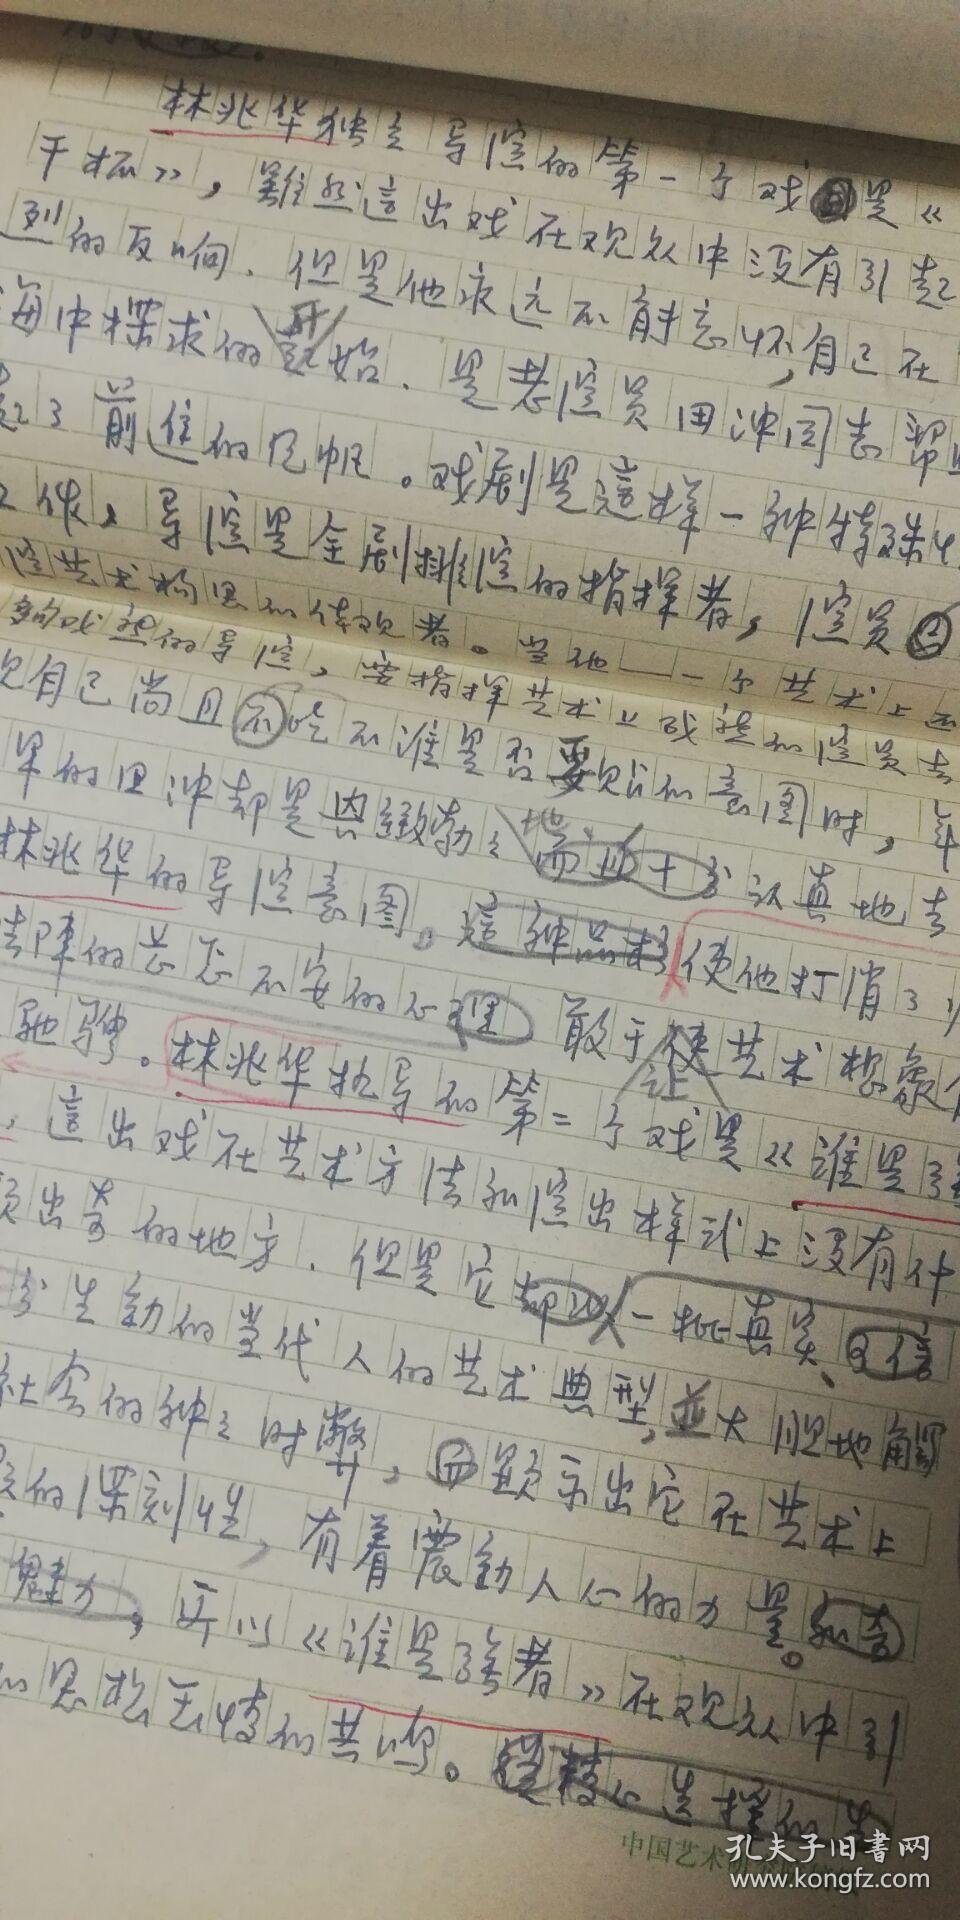 林兆华独立导演的第一个戏是《
干杯》，虽然這出戏在观众中没有引起
烈的反响．但是他永远不能忘怀，自己在
海中探求的开始．是老演员田冲同志帮
起了前进的风帆。戏剧是這样一种特殊
导演是全剧排演的指挥者，演员
演艺术构思的体现者。当他——一个艺术上
的导演，要指挥艺术上成熟的演员去
自己尚且不吃不准是否要如的意图时，
的田冲却是兴致勃勃地、十分认真地去
林兆华的导演意图。這种品格使他打消了
的忐忑不安的心理 敢于让艺术想象
驰骋。林兆华执导的第二个戏是《谁是强
，這出戏在艺术方法和演出样式上没有什
出奇的地方．但是它却以一批真实、可信
生動的当代人的艺术典型，並大胆地解
社会的种种时弊，而显示出它在艺术上
的深刻性，有着震動人心的力量。和奇
魅力，所以《谁是强者》在观众中引
思想感情的共鸣。
中国艺术研究院
孔夫子旧书网
www.kongfz.com